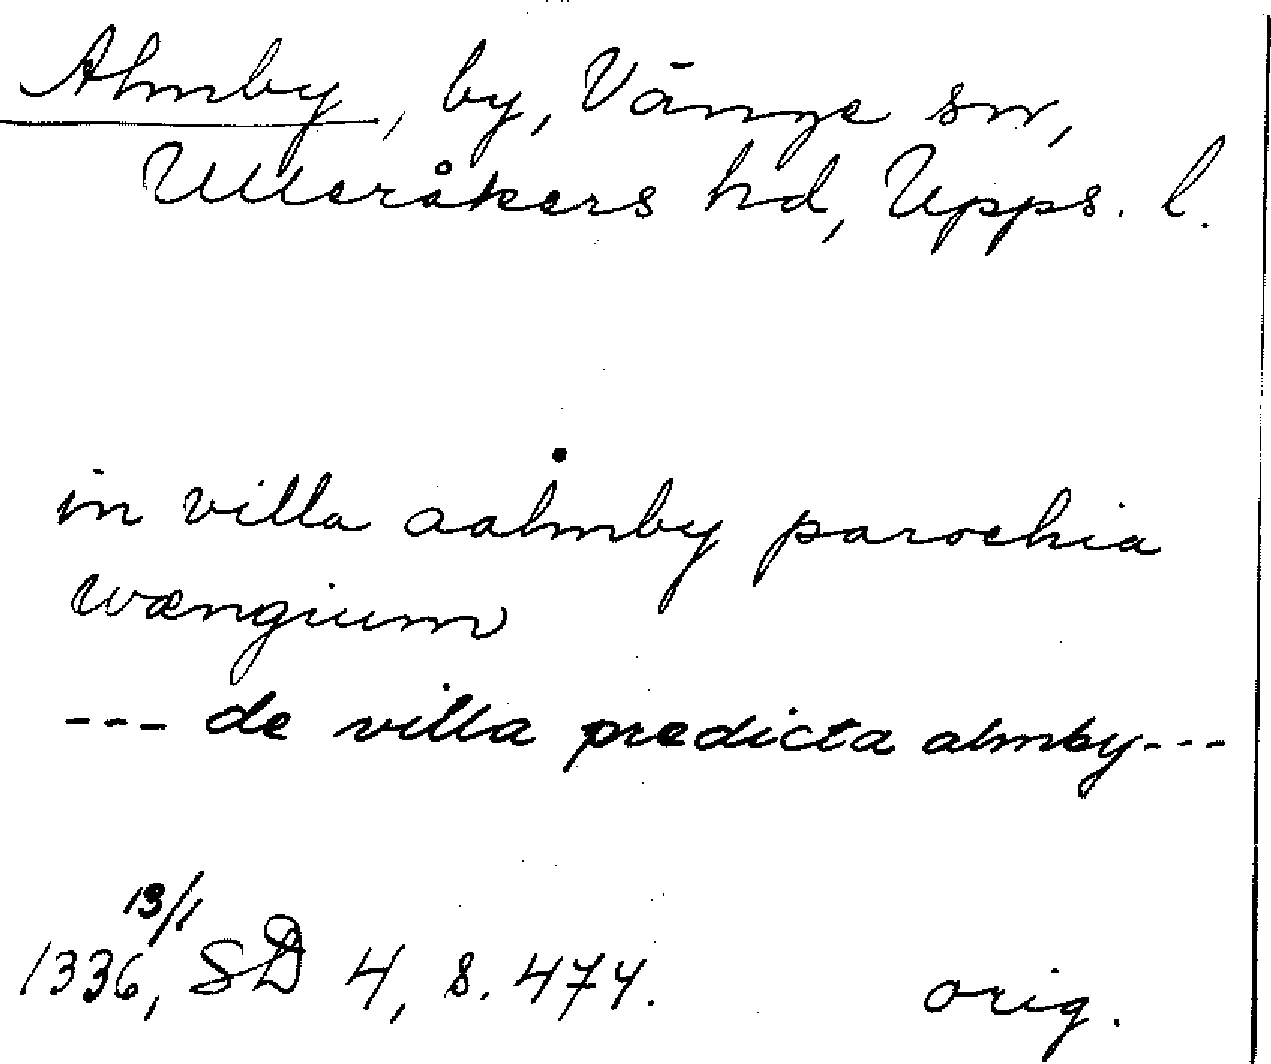 Almby, by, Vänge sn,
Ulleråkers hd, Upps. l.
in villa aalmby parochia
wængium
--- de villa predicta almby---
13/1
1336, SD 4, s. 474.
orig.